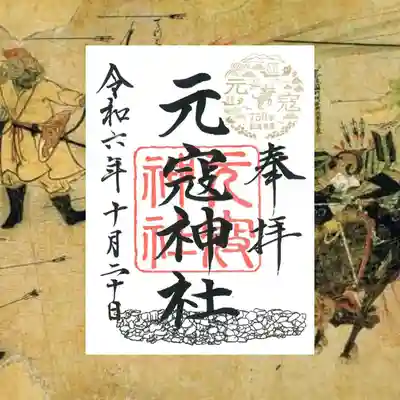 奉拝
元寇神社
元寇
神社
元寇
750年
令和六年十月二十日